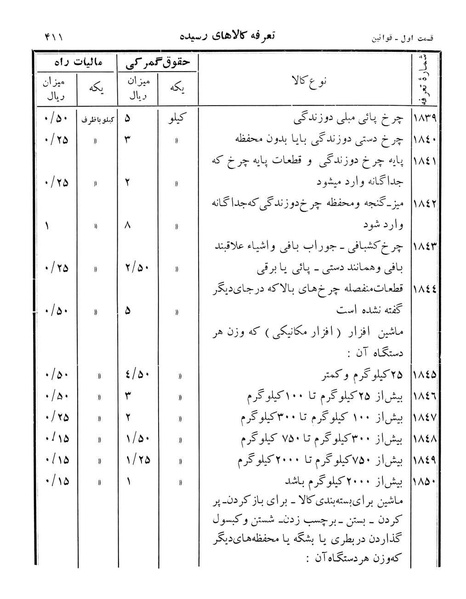 قسمت اول - قوانین تعرفه کالاهای رسیده ۴۱۱
شمارهٔ تعرفه نوع کالا حقوق گمرکی مالیات راه
یکه میزان ریال یکه میزان ریال
۱۸۳۹ چرخ پائی مبلی دوزندگی کیلو ۵ کیلو باظرف ۰/۵۰
۱۸۴۰ چرخ دستی دوزندگی بایا بدون محفظه » ۳ » ۰/۲۵
۱۸۴۱ پایه چرخ دوزندگی و قطعات پایه چرخ که
جداگانه وارد میشود » ۲ » ۰/۲۵
۱۸۴۲ میز-گنجه ومحفظه چرخ دوزندگی که جداگانه
وارد شود » ۸ » ۱
۱۸۴۳ چرخ کشبافی - جوراب بافی و اشیاء علاقبند
بافی وهمانند دستی - پائی یا برقی » ۲/۵۰ » ۰/۲۵
۱۸۴۴ قطعات منفصله چرخ‌های بالا که درجای دیگر
گفته نشده است » ۵ » ۰/۵۰
ماشین افزار (افزار مکانیکی) که وزن هر
دستگاه آن :
۱۸۴۵ ۲۵کیلوگرم وکمتر » ۴/۵۰ » ۰/۵۰
۱۸۴۶ بیش از ۲۵کیلوگرم تا ۱۰۰کیلوگرم » ۳ » ۰/۵۰
۱۸۴۷ بیش از ۱۰۰ کیلوگرم تا ۳۰۰کیلوگرم » ۲ » ۰/۲۵
۱۸۴۸ بیش از ۳۰۰کیلوگرم تا ۷۵۰ کیلوگرم » ۱/۵۰ » ۰/۱۵
۱۸۴۹ بیش از ۷۵۰کیلوگرم تا ۲۰۰۰کیلوگرم » ۱/۲۵ » ۰/۱۵
۱۸۵۰ بیش از ۲۰۰۰کیلوگرم باشد » ۱ » ۰/۱۵
ماشین برای بسته‌بندی کالا - برای باز کردن- پر
کردن - بستن - برچسب زدن- شستن وکپسول
گذاردن دربطری یا بشگه یا محفظه‌های دیگر
که‌وزن هردستگاه آن :